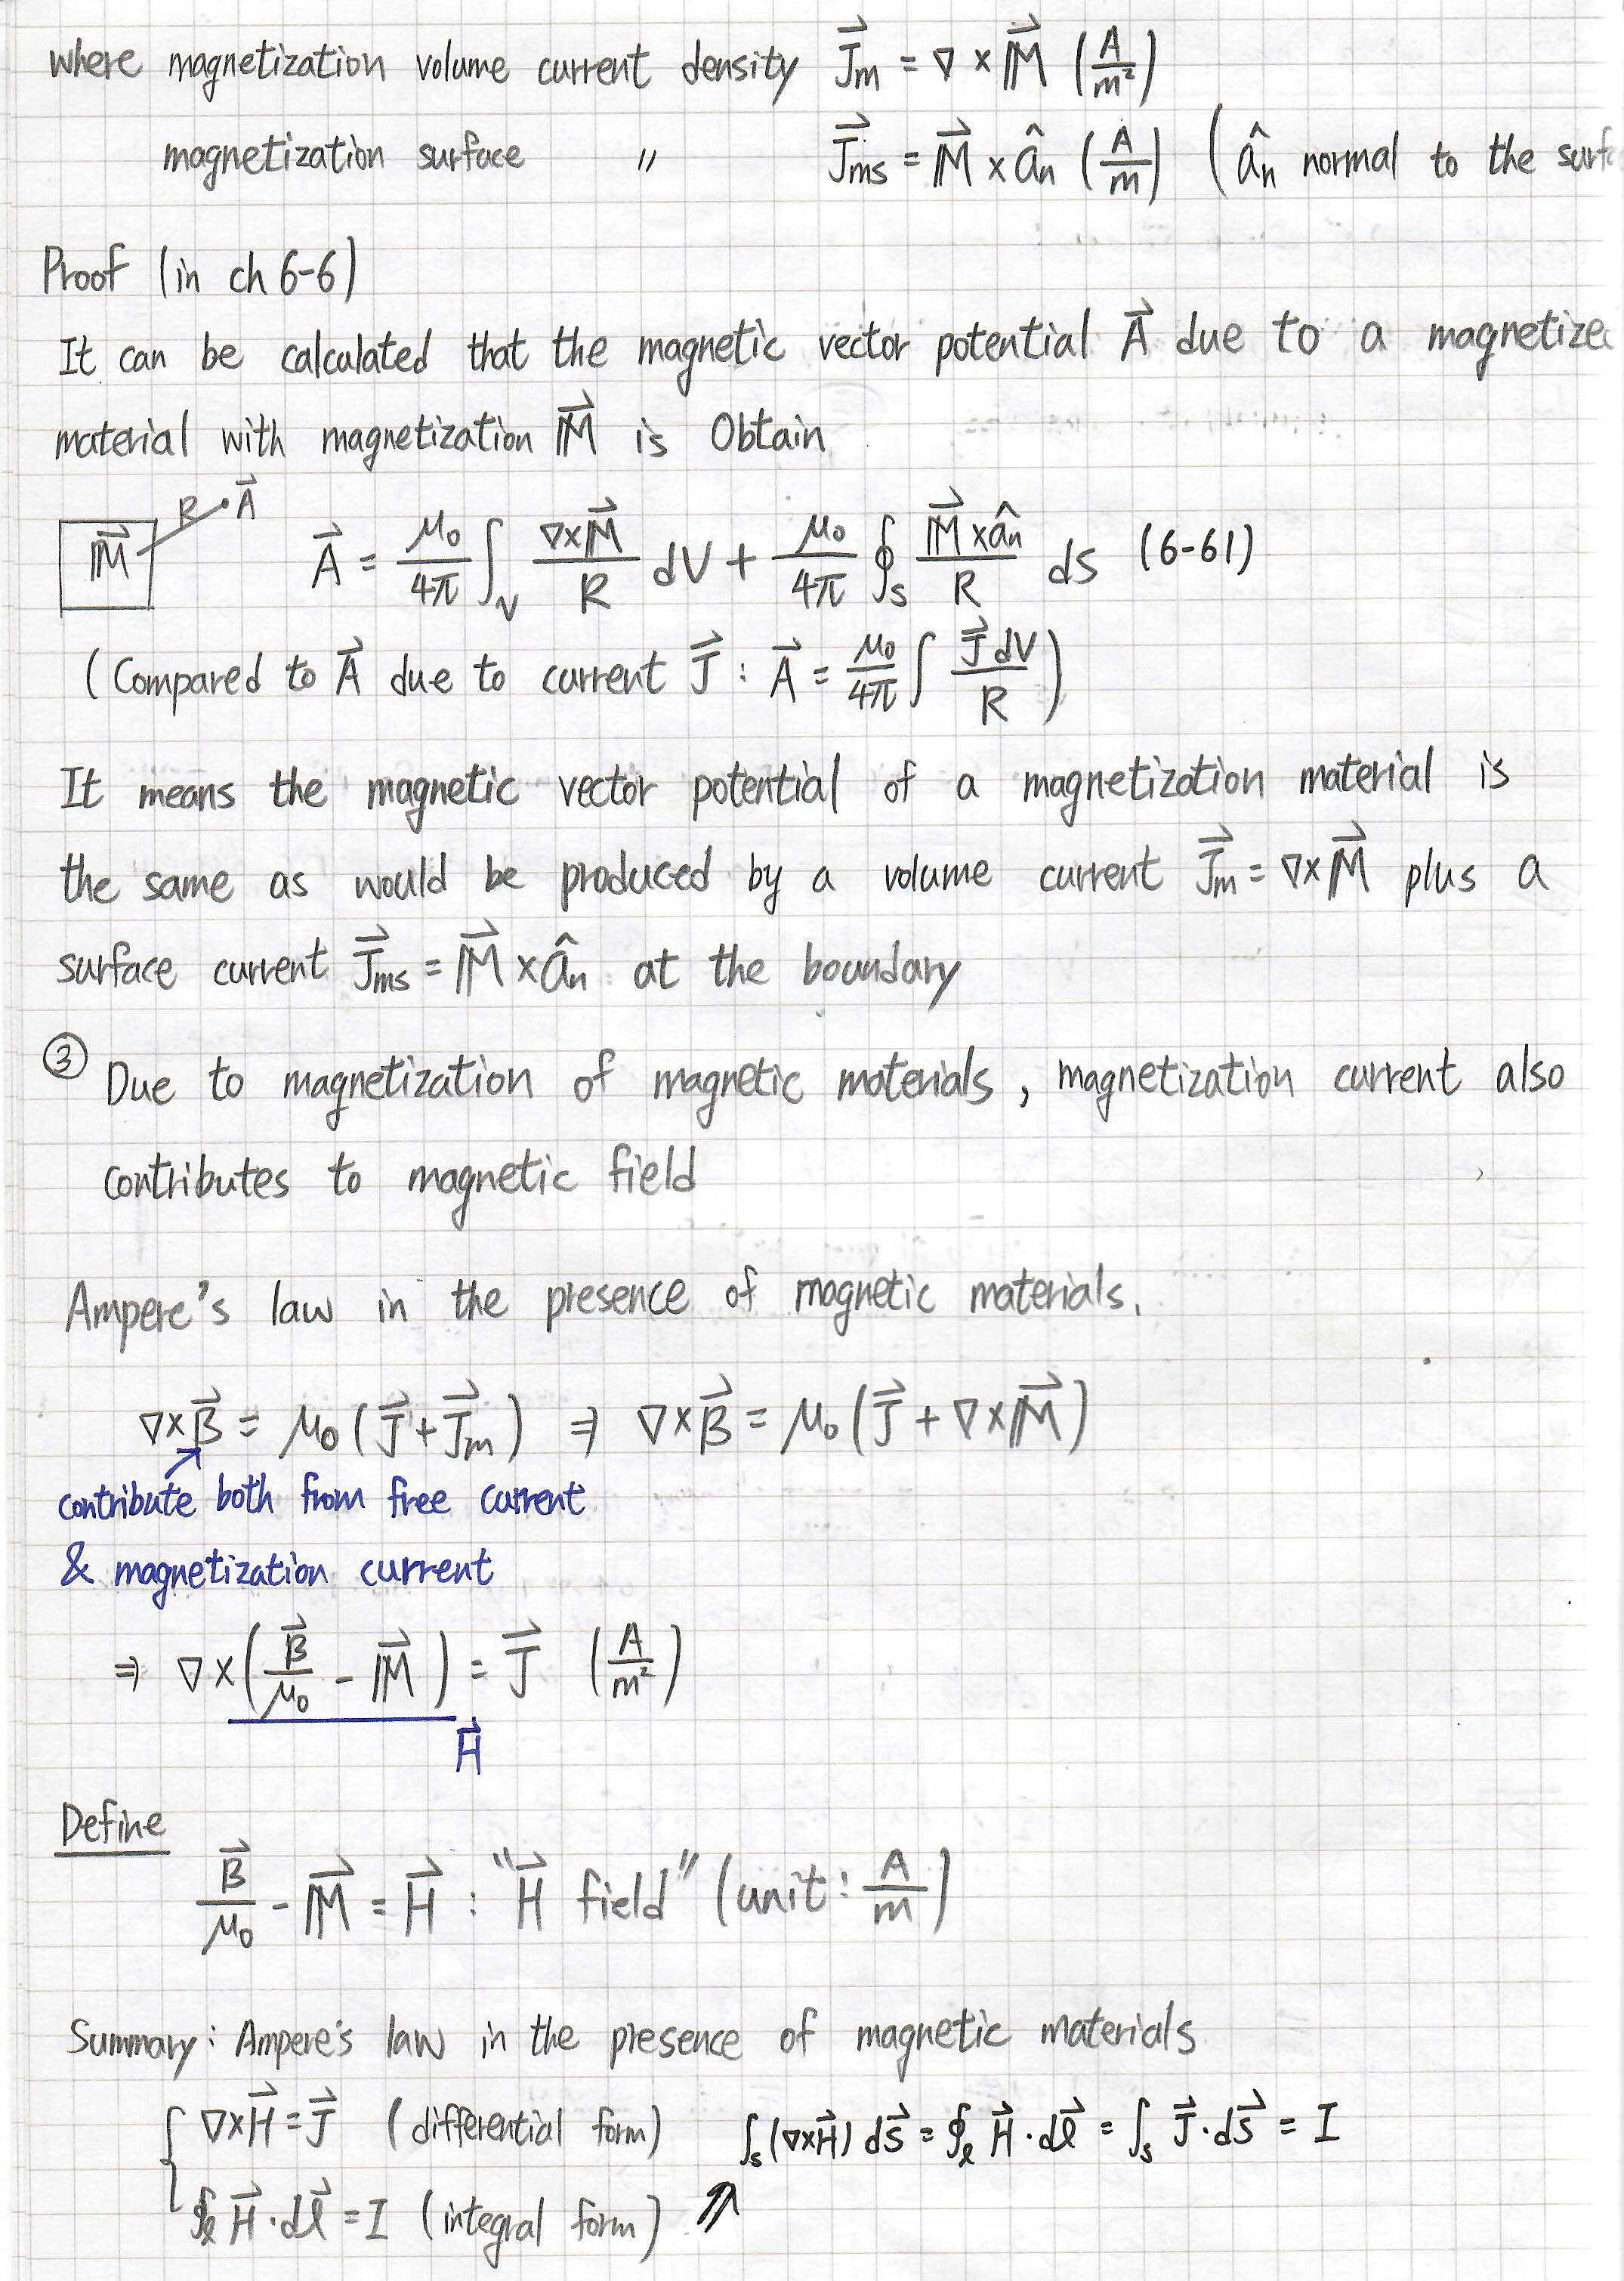 where magnetization volume current density J⃗m = ∇ × M⃗ (A/m²)
magnetization surface 〃 J⃗ms = M⃗ × âₙ (A/m) (âₙ normal to the surf
Proof (in ch 6-6)
It can be calculated that the magnetic vector potential A⃗ due to a magnetize
material with magnetization M⃗ is Obtain
M⃗ R A⃗ A⃗ = μ₀/4π ∫_V (∇×M⃗)/R dV + μ₀/4π ∮_S (M⃗×âₙ)/R ds (6-61)
(Compared to A⃗ due to current J⃗ : A⃗ = μ₀/4π ∫ J⃗dV/R)
It means the magnetic vector potential of a magnetization material is
the same as would be produced by a volume current J⃗m = ∇×M⃗ plus a
surface current J⃗ms = M⃗ × âₙ at the boundary
③ Due to magnetization of magnetic materials, magnetization current also
contributes to magnetic field
Ampere's law in the presence of magnetic materials.
∇×B⃗ = μ₀(J⃗+J⃗m) ⇒ ∇×B⃗ = μ₀(J⃗ + ∇×M⃗)
contribute both from free current
& magnetization current
⇒ ∇×(B⃗/μ₀ - M⃗) = J⃗ (A/m²)
H⃗
Define
B⃗/μ₀ - M⃗ = H⃗ : "H⃗ field" (unit: A/m)
Summary: Ampere's law in the presence of magnetic materials
∇×H⃗ = J⃗ (differential form) ∫ₛ(∇×H⃗) ds⃗ = ∮ₗ H⃗·dl⃗ = ∫ₛ J⃗·ds⃗ = I
∮ₗ H⃗·dl⃗ = I (integral form) ⇗